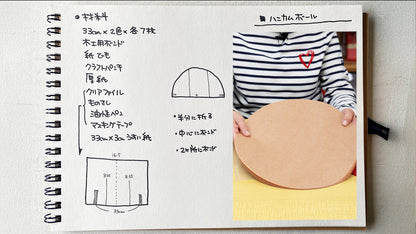 • 材料
33cm×2色×各7枚
木工用ボンド
紙でも
クラフトパンチ
厚紙
クリアファイル
ものさし
油性ペン
マスキングテープ
33cm×3cm うすい紙
16.5
33cm
■ ハニカムボール
• 半分に折る
• 中心にボンド
• 2ヶ所にボンド